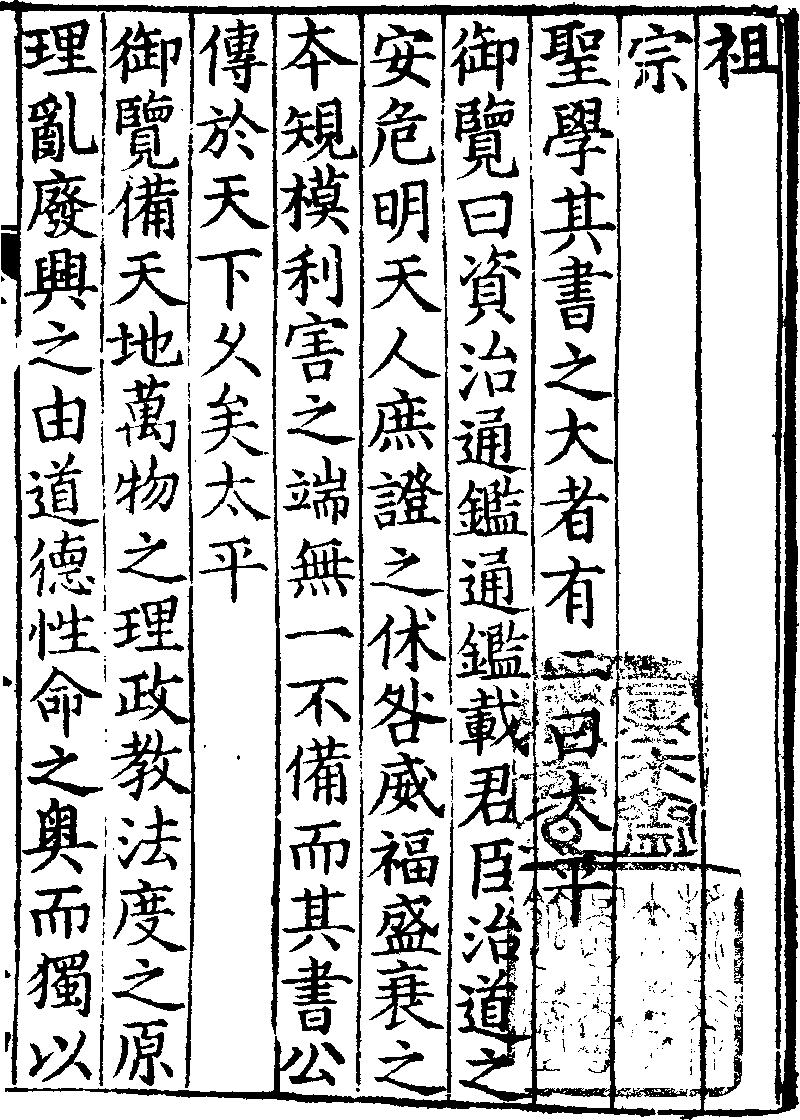 祖
宗
聖學其書之大者有二曰太平
御覽曰資治通鑑通鑑載君臣治道之
安危明天人庶證之休咎威福盛衰之
本規模利害之端無一不備而其書公
傳於天下久矣太平
御覽備天地萬物之理政教法度之原
理亂廢興之由道德性命之奧而獨以